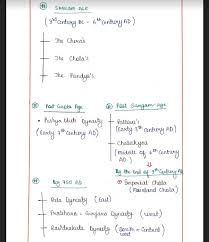 SANGAM AGE
(3rd Century BC - 6th Century AD)
The Chera's
The Chola's
The Pandya's
Post Gupta Age
Pushya bhuti Dynasty
(Early 7th Century AD)
Post Sangam Age
Pallava's
(Early 7th Century AD)
Chalukyas
(Middle of 6th Century AD)
By the end of 9th Century AD
Imperial Chola
(Mainland Chola)
By 750 AD
Pala Dynasty (East)
Pratihara - Gurjara Dynasty (West)
Rashtrakuta Dynasty (South + Central)